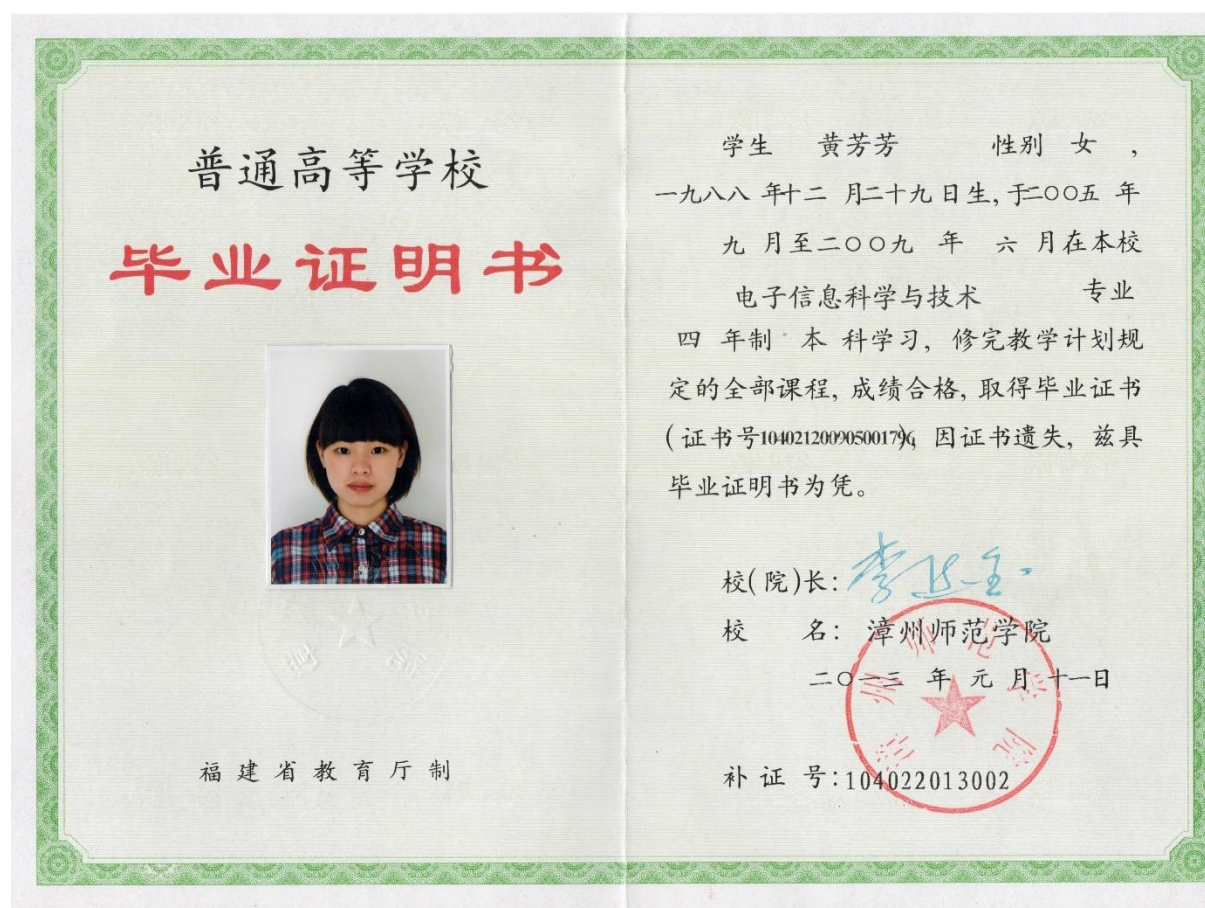 普通高等学校
毕业证明书
福建省教育厅制
学生 黄芳芳 性别 女 ,
一九八八 年十二 月二十九日生, 于二〇〇五 年
九 月至二〇〇九 年 六 月在本校
电子信息科学与技术 专业
四 年制 本 科学习, 修完教学计划规
定的全部课程, 成绩合格, 取得毕业证书
(证书号104021200905001796), 因证书遗失, 兹具
毕业证明书为凭。
校(院)长:
校 名: 漳州师范学院
二〇一三 年 元 月 十一日
补 证 号:104022013002
漳州师范学院